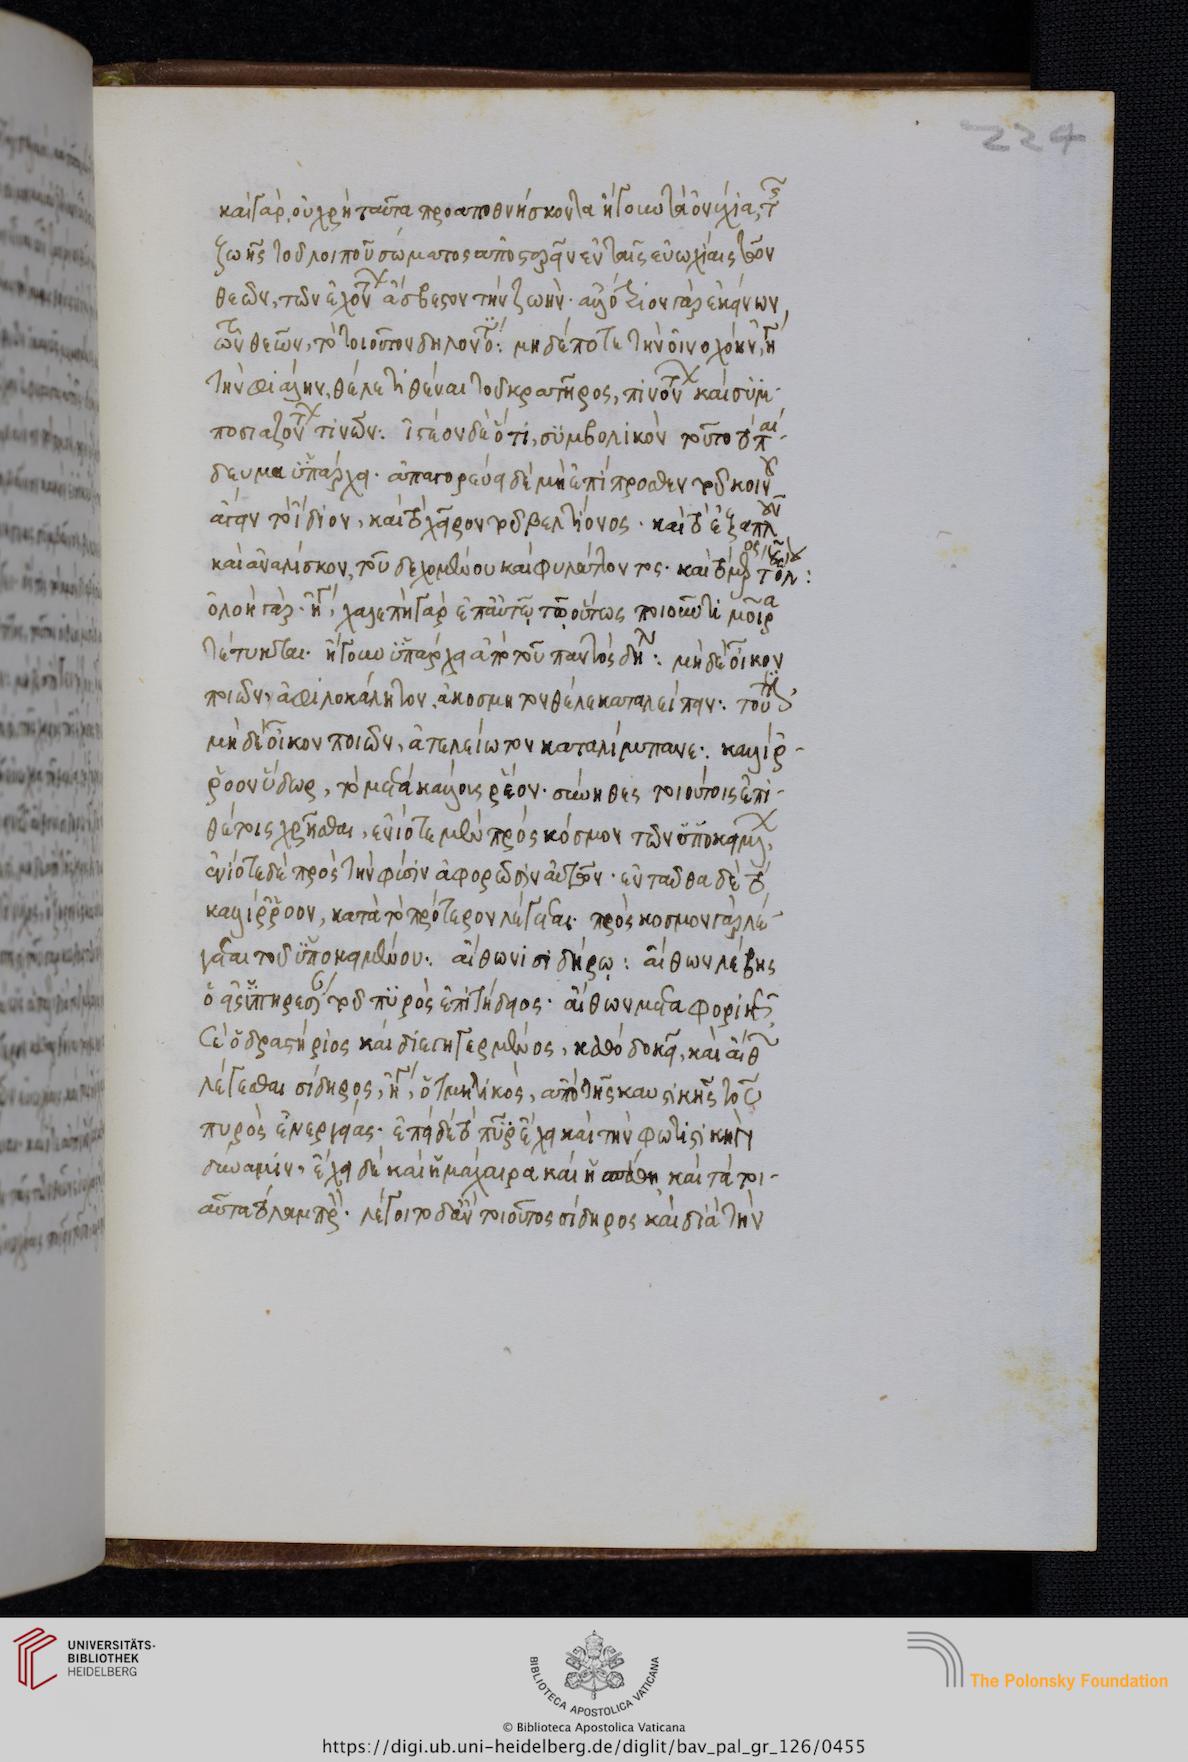 224
καὶ γὰρ, οὐ χρὴ ταῦτα προαποθνήσκοντα ἤγουν τὰ ὀνύχια, τ
ζωῆς τοῦ λοιποῦ σώματος ἀποστολεῖν ἐν ταῖς εὐωχίαις τῶν
θεῶν, τῶν ἐχόντ ἄσβεστον τὴν ζωὴν ἐκείνων,
τῶν θεῶν, τὸ τοιοῦτον δηλονότ: μηδέποτε τὴν οἰνοχόην, ἤ
τὴν φιάλην, θέλε τιθέναι τοῦ κρατῆρος, πινόντ καὶ συμ-
ποσιαζόντ τινῶν: ἰστέον δὲ ὅτι, συμβολικὸν τοῦτο τὸ παί-
δευμα ὑπάρχει· ἀπαγορεύει δὲ μὴ ἐπίπροσθεν τοῦ κοινοῦ
ἄγειν τὸ ἴδιον, καὶ τὸ χεῖρον τοῦ βελτίονος· καὶ τὸ ἐξαπλοῦν
καὶ ἀναλίσκον, τοῦ δεχομένου καὶ φυλάττοντος·
ὀλοὴ γὰρ· ἤγ, χαλεπὴ γὰρ ἐπ' αὐτῷ τῷ οὕτως ποιοῦντι μοῖρα
τέτυκται· ἤγουν ὑπάρχει ἀπὸ τοῦ παντὸς δη: μὴ δὲ οἶκον
ποιῶν, ἀφιλοκάλητον, ἀκόσμητον θέλε καταλείπειν: τοῦτ
μὴ δὲ οἶκον ποιῶν, ἀτελείωτον καταλίμπανε: καλίρ-
ροον ὕδωρ, τὸ μετὰ κάλους ῥέον· σύνηθες τοιούτοις ἐπι-
θέτοις χρῆσθαι, ἐνίοτε μὲν πρὸς κόσμον τῶν ὑποκειμ,
ἐνίοτε δὲ πρὸς τὴν φύσιν ἀφορῶσιν αὐτῶν· ἐνταῦθα δὲ τὸ
καλίρροον, κατὰ τὸ πρότερον λέγεται· πρὸς κόσμον γὰρ λέ-
γεται τοῦ ὑποκειμένου: αἴθωνι σιδήρῳ: αἴθων λέβης
ὁ εἰς ὑπηρεσ τοῦ πυρὸς ἐπιτήδειος· αἴθων μεταφορικ
ὁ δραστήριος καὶ διεγηγερμένος, καθὸ δοκεῖ, καὶ αἴθ
λέγεσθαι σίδηρος, ἤγ, ὁ τμητικὸς, ἀπὸ τῆς καυστικῆς τοῦ
πυρὸς ἐνεργείας· ἐπεὶ δὲ τὸ πῦρ ἔχει καὶ τὴν φωτιστικὴν
δύναμιν, ἔχει δὲ καὶ ἡ μάχαιρα καὶ ἡ σπάθη καὶ τὰ τοι-
αῦτα τὸ λαμπρὸ· λέγοιτο δ' ἂν τοιοῦτος σίδηρος καὶ διὰ τὴν
UNIVERSITÄTS-
BIBLIOTHEK
HEIDELBERG
BIBLIOTECA APOSTOLICA VATICANA
© Biblioteca Apostolica Vaticana
The Polonsky Foundation
https://digi.ub.uni-heidelberg.de/diglit/bav_pal_gr_126/0455